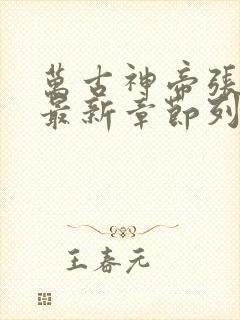 萬古神帝張
最新章節列
王春元